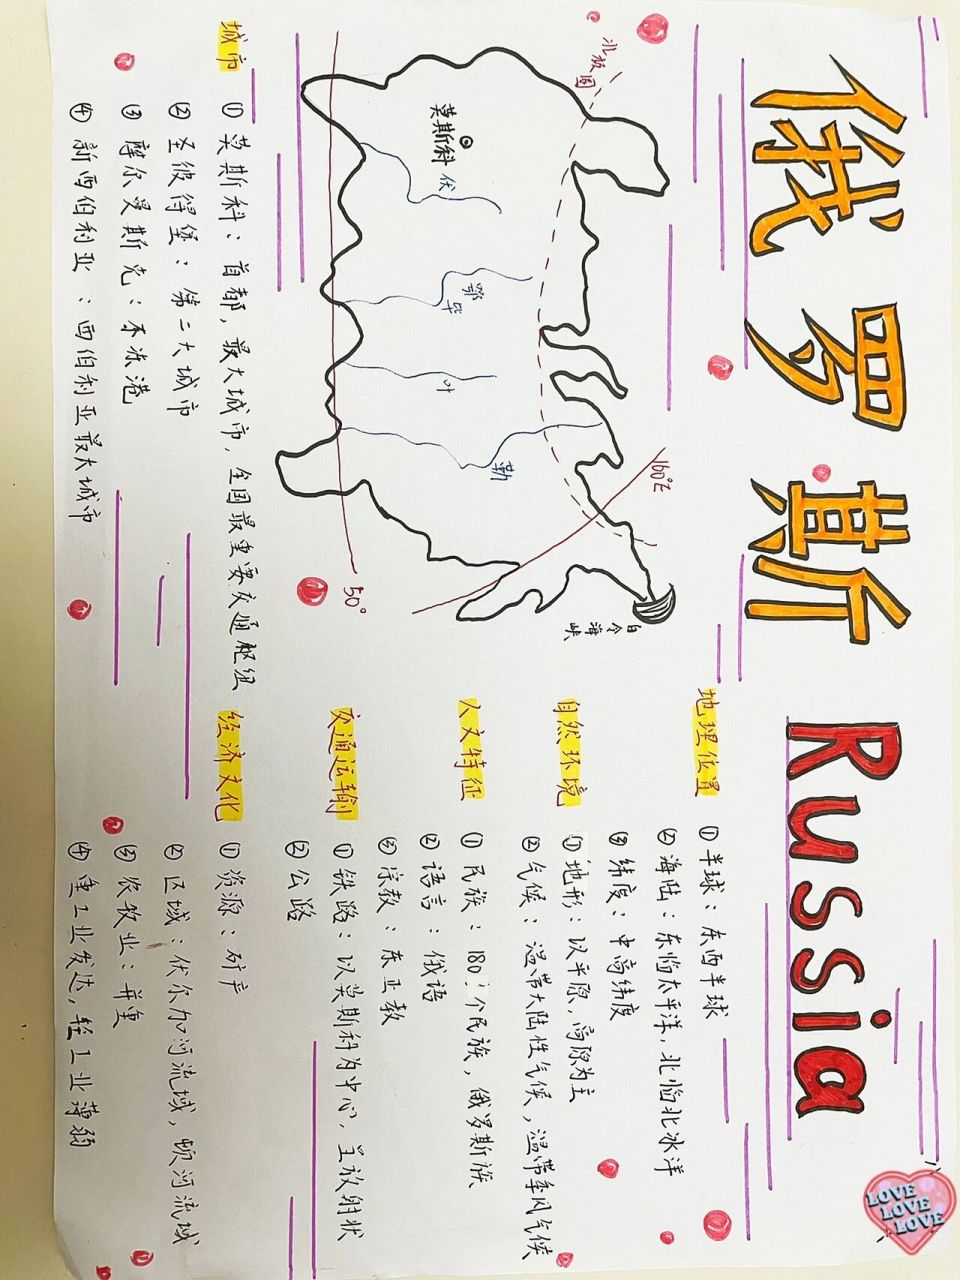 俄罗斯 Russia
北极圈
莫斯科
伏
鄂
毕
叶
勒
160°E
50°
白令海峡
城市
① 莫斯科：首都，最大城市，全国最重要交通枢纽
② 圣彼得堡：第二大城市
③ 摩尔曼斯克：不冻港
④ 新西伯利亚：西伯利亚最大城市
地理位置
① 半球：东西半球
② 海陆：东临太平洋，北临北冰洋
③ 纬度：中高纬度
自然环境
① 地形：以平原，高原为主
② 气候：温带大陆性气候，温带季风气候
人文特征
① 民族：180个民族，俄罗斯族
② 语言：俄语
③ 宗教：东正教
交通运输
① 铁路：以莫斯科为中心，呈放射状
② 公路
经济文化
① 资源：矿产
② 区域：伏尔加河流域，顿河流域
③ 农牧业：并重
④ 重工业发达，轻工业薄弱
LOVE
LOVE
LOVE